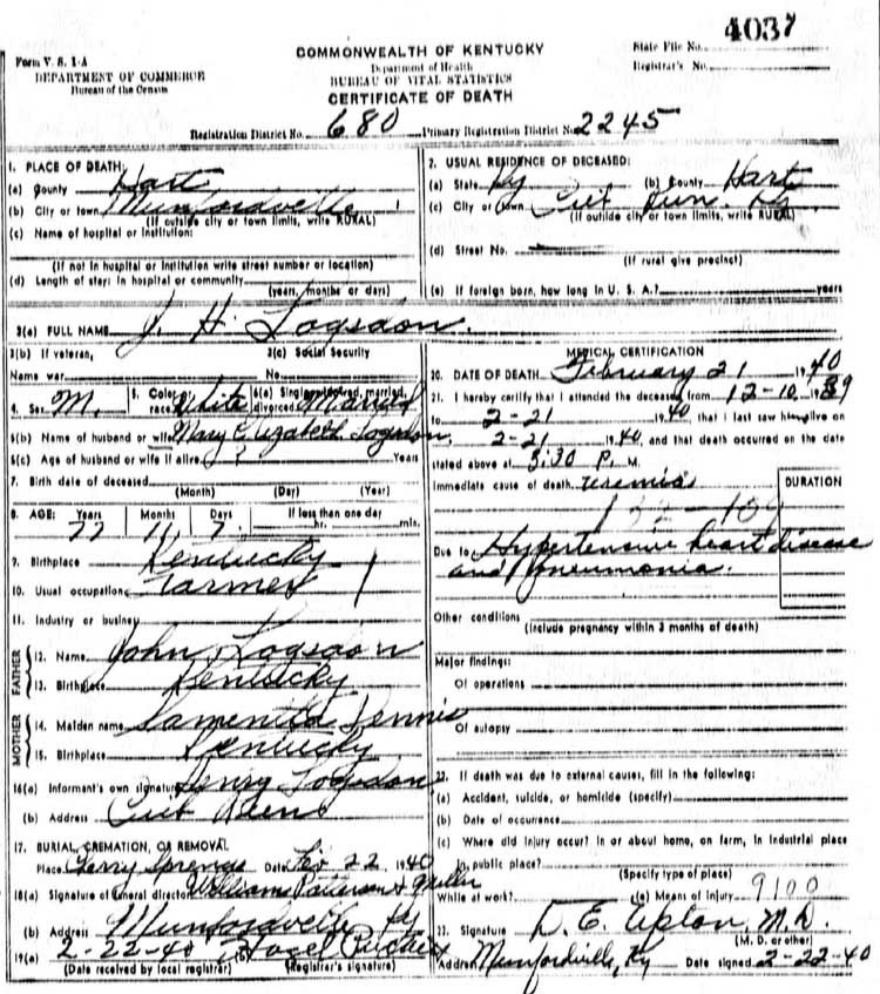 4037
State File No.
Registrar's No.
Form V. S. 1-A
DEPARTMENT OF COMMERCE
Bureau of the Census
COMMONWEALTH OF KENTUCKY
Department of Health
BUREAU OF VITAL STATISTICS
CERTIFICATE OF DEATH
Registration District No. 680 Primary Registration District No. 2245
1. PLACE OF DEATH:
(a) County Hart
(b) City or town Munfordville
(If outside city or town limits, write RURAL)
(c) Name of hospital or Institution:
(If not in hospital or institution write street number or location)
(d) Length of stay: in hospital or community
(years, months or days)
2. USUAL RESIDENCE OF DECEASED:
(a) State Ky (b) County Hart
(c) City or town Cub Run. Ky
(If outside city or town limits, write RURAL)
(d) Street No.
(If rural give precinct)
(e) If foreign born, how long in U. S. A.? years
3(a) FULL NAME J. H. Logsdon.
3(b) If veteran,
Name war
3(c) Social Security
No.
4. Sex M. 5. Color or race White 6(a) Single, widowed, married, divorced Married
6(b) Name of husband or wife Mary Elizabeth Logsdon
6(c) Age of husband or wife if alive ? Years
7. Birth date of deceased
(Month) (Day) (Year)
8. AGE: Years Months Days If less than one day
77 11 7 hr. min.
9. Birthplace Kentucky
10. Usual occupation Farmer
11. Industry or business
FATHER
12. Name John Logsdon
13. Birthplace Kentucky
MOTHER
14. Maiden name Dennis
15. Birthplace Kentucky
16(a) Informant's own signature Henry Logsdon
(b) Address Cub Run
17. BURIAL, CREMATION, OR REMOVAL
Place Springs Date Feb 22, 1940
18(a) Signature of funeral director William Patterson & Miller
(b) Address Munfordville Ky
19(a) 2-22-40 (b) Hazel
(Date received by local registrar) (Registrar's signature)
MEDICAL CERTIFICATION
20. DATE OF DEATH February 21 1940
21. I hereby certify that I attended the deceased from 12-10, 1939
to 2-21 1940, that I last saw him alive on
2-21 1940, and that death occurred on the date
stated above at 3:30 P. M.
Immediate cause of death uremia
DURATION
Due to Hypertensive heart disease
and Pneumonia.
Other conditions
(Include pregnancy within 3 months of death)
Major findings:
Of operations
Of autopsy
22. If death was due to external causes, fill in the following:
(a) Accident, suicide, or homicide (specify)
(b) Date of occurrence
(c) Where did injury occur? In or about home, on farm, in industrial place
in public place?
(Specify type of place)
While at work? (e) Means of injury 9100
23. Signature D. E. Upton, M.D.
(M. D. or other)
Address Munfordville, Ky Date signed 2-22-40